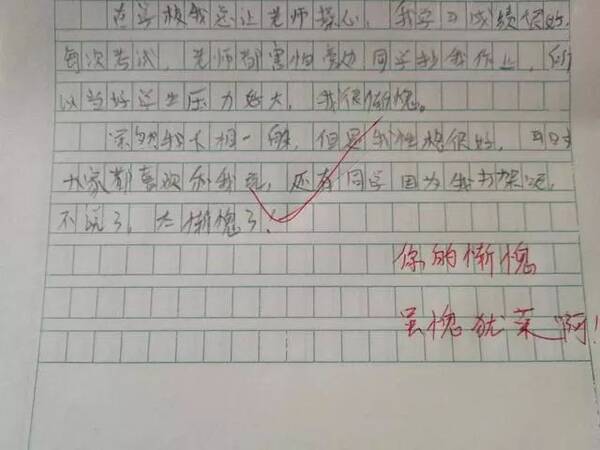 在学校我总让老师操心，我学习成绩很好，
每次考试，老师都害怕旁边同学抄我作业，所
以当好学生压力好大，我很惭愧。
虽然我长相一般，但是我性格很好，平时
大家都喜欢和我玩，还有同学因为我打架呢，
不说了，太惭愧了！
你的惭愧
虽愧犹荣啊！